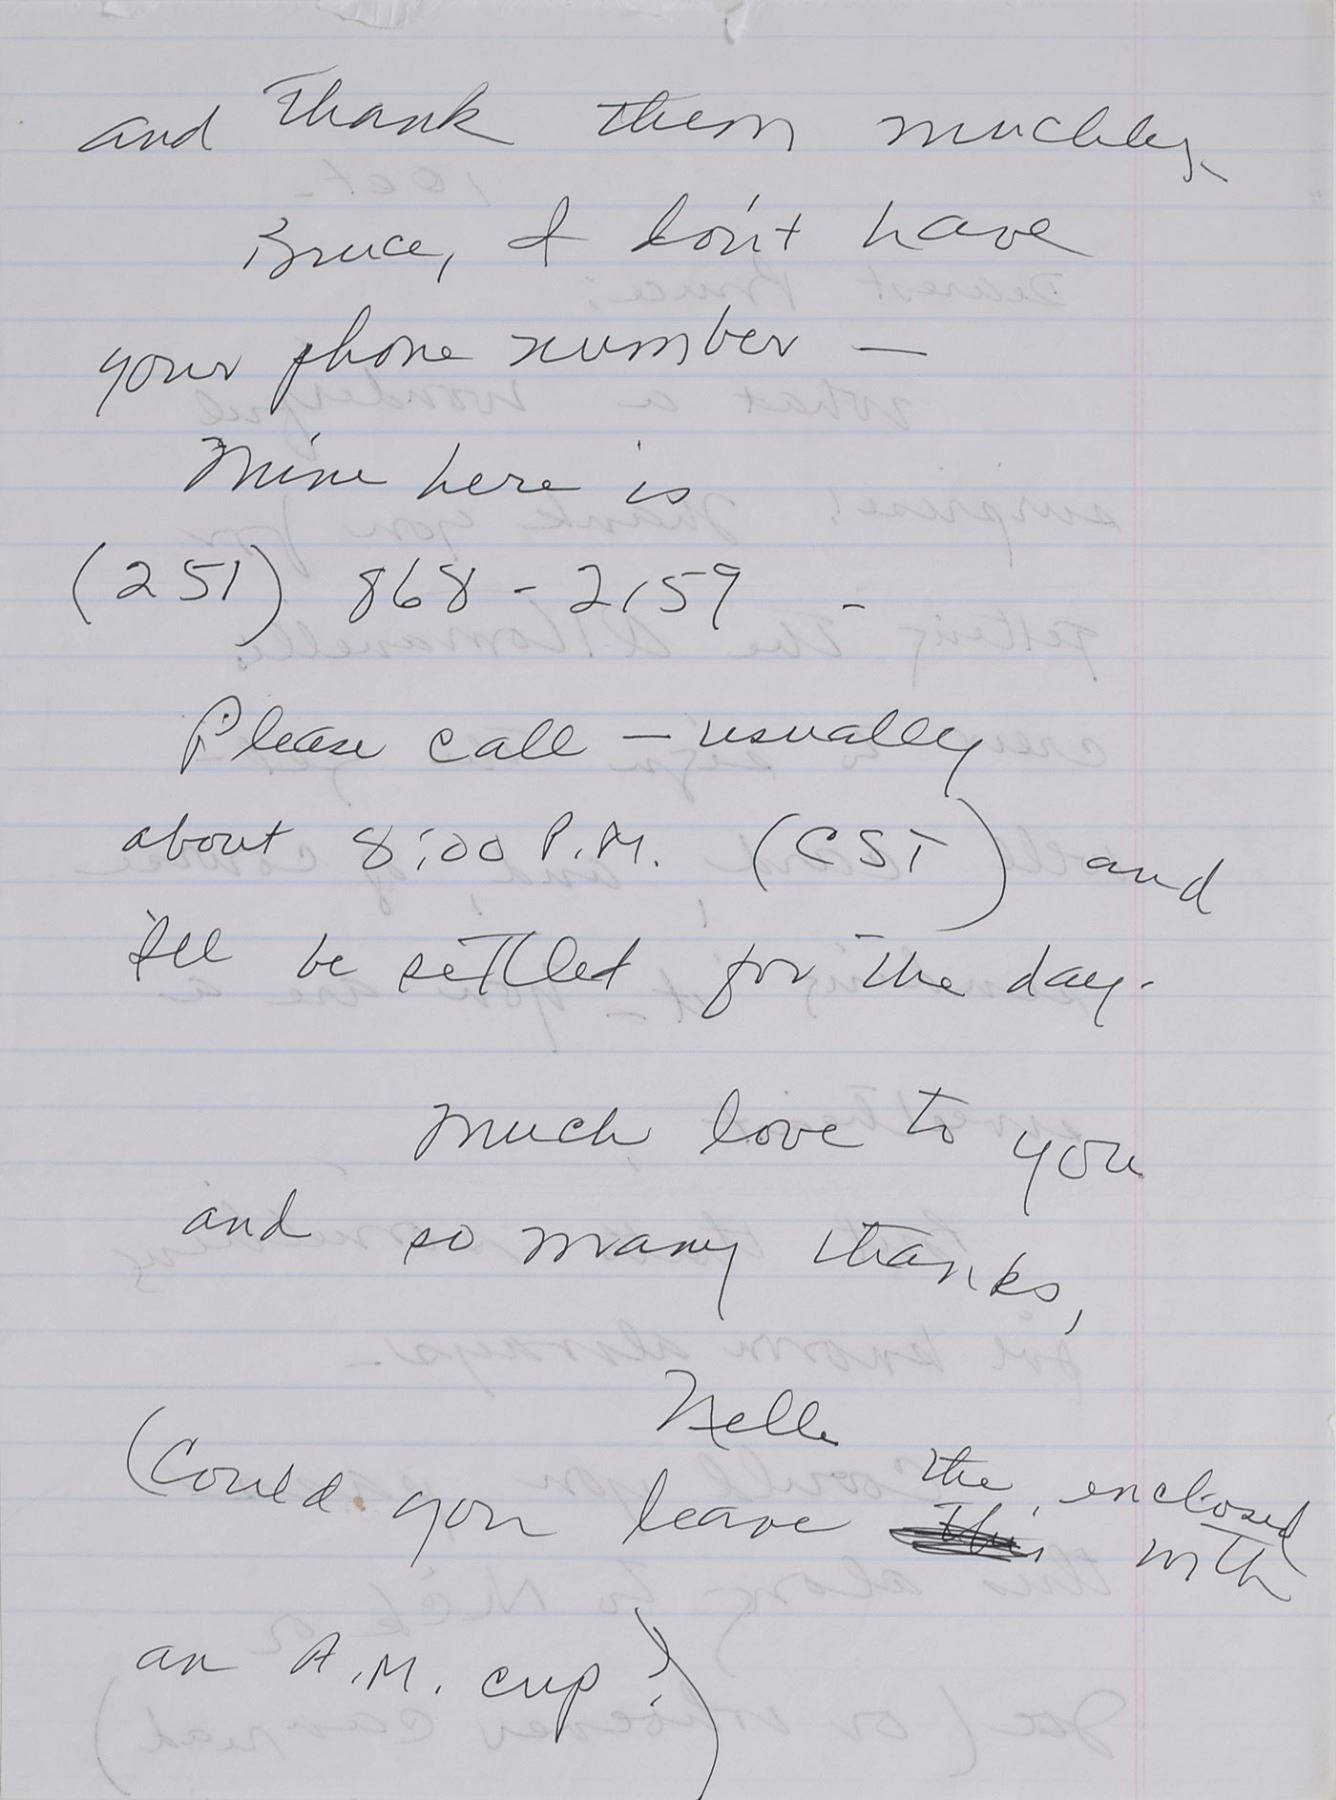 and thank them muchly.
Bruce, I don't have
your phone number —
Mine here is
(251) 868-2159 -
Please call — usually
about 8:00 P.M. (CST) and
I'll be settled for the day.
Much love to you
and so many thanks,
Nelle
(Could you leave this the enclosed with
an A.M. cup?)